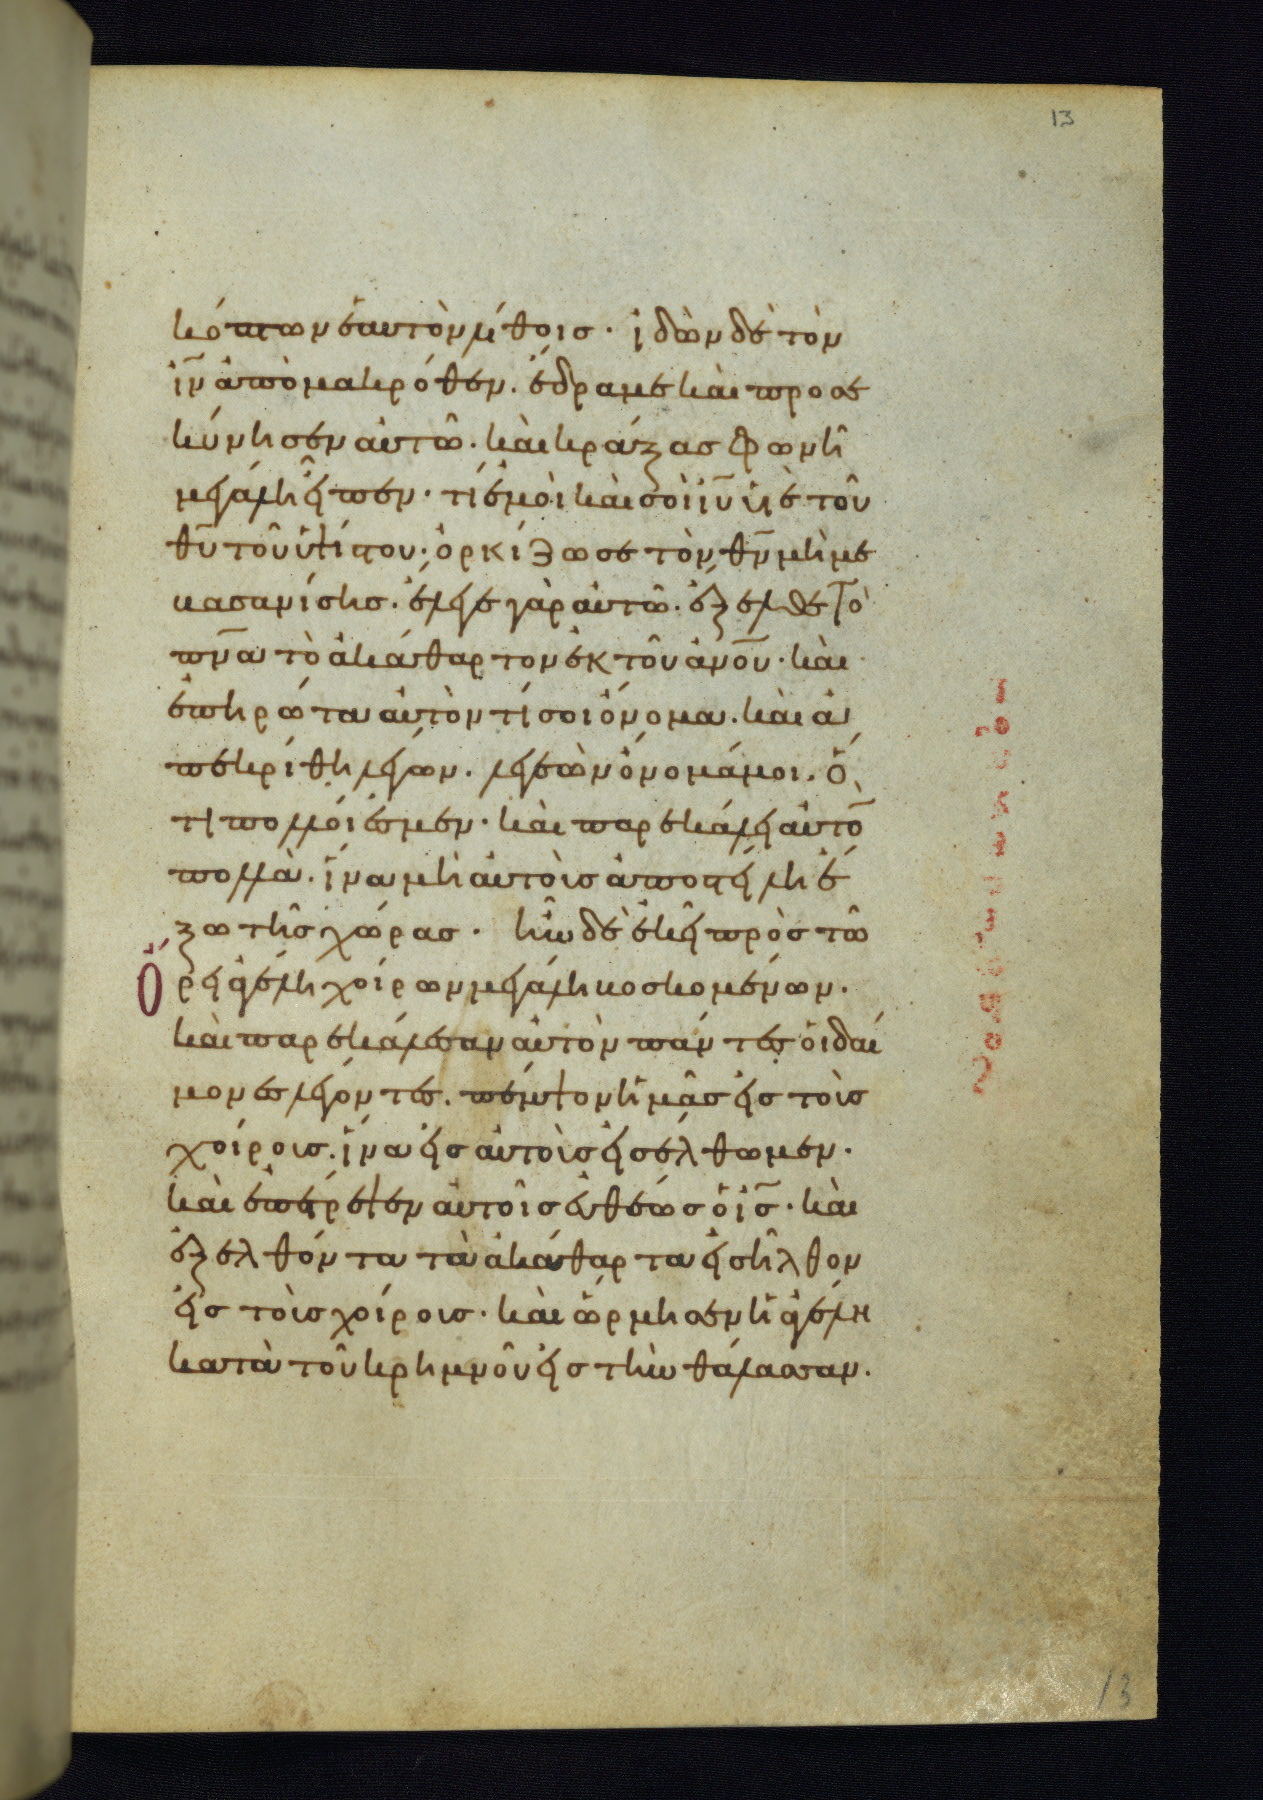 13
κόπτων ἑαυτὸν λίθοις· ἰδὼν δὲ τὸν
ἰν̄ ἀπὸ μακρόθεν. ἔδραμε καὶ προσε
κύνησεν αὐτῶ· καὶ κράξας φωνῆ
μεγάλη εἶπεν· τί ἐμοὶ καὶ σοὶ ἰῡ υἱὲ τοῦ
θῡ τοῦ ὑψίστου· ὁρκίζω σε τὸν θν̄ μή με
βασανίσης. ἔλεγε γὰρ αὐτῶ. ἔξελθε τὸ
πν̄α τὸ ἀκάθαρτον ἐκ τοῦ ἀνοῦ̄· καὶ
ἐπηρώτα αὐτὸν τί σοι ὄνομα. καὶ ἀ
πεκρίθη λέγων. λεγεὼν ὄνομά μοι. ὅ
τι πολλοί ἐσμεν· καὶ παρεκάλει αὐτὸ̄
πολλὰ. ἵνα μὴ αὐτοὺς ἀποστείλη ἔ
ξω τῆς χώρας· ἦν δὲ ἐκεῖ πρὸς τῶ
Ὄρει ἀγέλη χοίρων μεγάλη βοσκομένων.
καὶ παρεκάλεσαν αὐτὸν πάντες οἱ δαί
μονες λέγοντες. πέμψον ἡμᾶς εἰς τοὺς
χοίρους. ἵνα εἰς αὐτοὺς εἰσέλθωμεν.
καὶ ἐπέτρεψεν αὐτοῖς εὐθέως ὁ ἰς̄· καὶ
ἐξελθόντα τὰ ἀκάθαρτα εἰσῆλθον
εἰς τοὺς χοίρους· καὶ ὥρμησεν ἡ ἀγέλη
κατὰ τοῦ κρημνοῦ εἰς τὴν θάλασσαν.
13